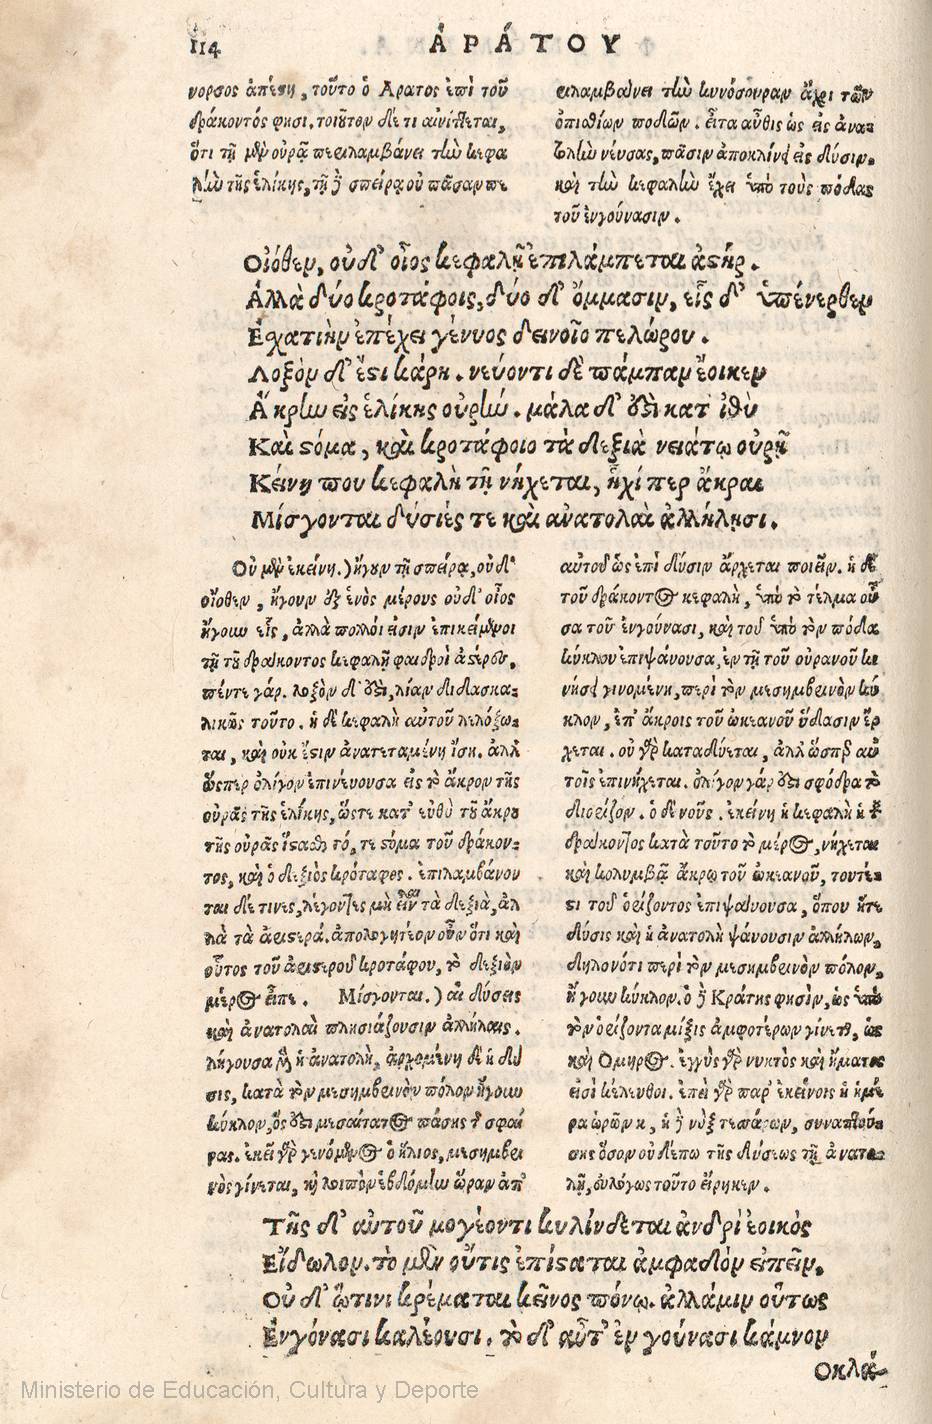 114 ἈΡΆΤΟΥ
νορσος ἀπέςη, τοῦτο ὁ Αρατος ἐπὶ τοῦ
δράκοντός φησι. τοιοῦτον δέ τι αἰνίττεται,
ὅτι τῇ μὲν οὐρᾷ περιλαμβάνει τὴν κεφα
λὴν τῆς ἑλίκης, τῇ δὲ σπείρᾳ οὐ πᾶσαν πε
ριλαμβάνει τὴν κυνόσουραν ἄχρι τῶν
ὀπισθίων ποδῶν. εἶτα αὖθις ὡς εἰς ἀνα-
βολὴν νεύσας, πᾶσιν ἀποκλίνει εἰς δύσιν.
καὶ τὴν κεφαλὴν ἔχει ὑπὸ τοὺς πόδας
τοῦ ἐνγούνασιν.
Οἰόθεν, οὐδ' οἶος κεφαλῇ ἐπιλάμπεται ἀςήρ.
Ἀλλὰ δύο κροτάφοις, δύο δ' ὄμμασιν, εἷς δ' ὑπένερθεν
Ἐχατιὴν ἐπέχει γένυος δεινοῖο πελώρου.
Λοξὸν δ' ἔςι κάρη. νεύοντι δὲ πάμπαν ἔοικεν
Ἄκρην εἰς ἑλίκης οὐρήν. μάλα δ' ἐςὶ κατ' ἰθὺ
Καὶ ςόμα, καὶ κροτάφοιο τὰ δεξιὰ νειάτῳ οὐρῇ
Κείνη που κεφαλὴ τῇ νήχεται, ἧχί περ ἄκραι
Μίσγονται δύσιές τε καὶ ἀνατολαὶ ἀλλήλῃσι.
Οὐ μὴν ἐκείνη.) ἤγουν τῇ σπείρᾳ, οὐδ'
οἴοθεν, ἤγουν ἐξ ἑνὸς μέρους οὐδ' οἶος
ἤγουν εἷς, ἀλλὰ πολλοί εἰσιν ἐπικείμενοι
τῇ τοῦ δράκοντος κεφαλῇ φαιδροὶ ἀςέρες,
πέντε γάρ. λοξὸν δ' ἐςὶ, λίαν διδασκα-
λικῶς τοῦτο. ἡ δὲ κεφαλὴ αὐτοῦ λελόξω-
ται, καὶ οὐκ ἔςιν ἀνατεταμένη ἴση. ἀλλ'
ὥσπερ ὀλίγον ἐπινεύουσα εἰς τὸ ἄκρον τῆς
οὐρᾶς τῆς ἑλίκης, ὥςτε κατ' εὐθὺ τοῦ ἄκρου
τῆς οὐρᾶς ἵςασθαι τό, τε ςόμα τοῦ δράκον-
τος, καὶ ὁ δεξιὸς κρόταφος. ἐπιλαμβάνον
ται δέ τινες, λέγοντες μὴ εἶναι τὰ δεξιὰ, ἀλ
λὰ τὰ ἀριςερά. ἀπολογητέον οὖν ὅτι καὶ
οὗτος τοῦ ἀριςεροῦ κροτάφου, τὸ δεξιὸν
μέρος εἶπε. Μίσγονται.) αἱ δύσεις
καὶ ἀνατολαὶ πλησιάζουσιν ἀλλήλαις.
λήγουσα γὰρ ἡ ἀνατολὴ, ἀρχομένη δὲ ἡ δύ
σις, κατὰ τὸν μεσημβρινὸν πόλον ἤγουν
κύκλον, ὅς ἐςι μεσαίτατος πάσης τῆς σφαί
ρας. ἐκεῖ γὰρ γενόμενος ὁ ἥλιος, μεσημβρι
νὸς γίνεται, καὶ λοιπὸν ἑβδόμην ὥραν ἀπ'
αὐτοῦ ὡς ἐπὶ δύσιν ἄρχεται ποιεῖν. ἡ δὲ
τοῦ δράκοντος κεφαλὴ, ὑπὸ τὸ τέλμα οὖ
σα τοῦ ἐνγούνασι, καὶ τοῦ ὑπὸ τὸν πόδα
κύκλου ἐπιψάνουσα, ἐν τῇ τοῦ οὐρανοῦ κι
νήσει γινομένη, περὶ τὸν μεσημβρινὸν κύ
κλον, ἐπ' ἄκροις τοῦ ὠκεανοῦ ὕδασιν ἔρ
χεται. οὐ γὰρ καταδύεται, ἀλλ' ὥσπερ αὐ
τοῖς ἐπινήχεται. ὀλίγον γάρ ἐςι σφόδρα τὸ
διορίζον. ὁ δὲ νοῦς. ἐκείνη ἡ κεφαλὴ ἡ τοῦ
δράκοντος κατὰ τοῦτο τὸ μέρος, νήχεται
καὶ κολυμβᾷ ἄκρῳ τοῦ ὠκεανοῦ, τουτέ-
ςι τοῦ ὁρίζοντος ἐπιψαύουσα, ὅπου ἥτε
δύσις καὶ ἡ ἀνατολὴ ψάνουσιν ἀλλήλων,
δηλονότι περὶ τὸν μεσημβρινὸν πόλον,
ἤγουν κύκλον. ὁ δὲ Κράτης φησὶν, ὡς ὑπὸ
τὸν ὁρίζοντα μίξις ἀμφοτέρων γίνεται, ὡς
καὶ Ὅμηρος. ἐγγὺς γὰρ νυκτὸς καὶ ἤματος
εἰσὶ κέλευθοι. ἐπεὶ γὰρ παρ' ἐκείνοις ἡ ἡμέ
ρα ὡρῶν κ, ἡ δὲ νὺξ τεσσάρων, συναπτού-
σης ὅσον οὐδέπω τῆς δύσεως τῇ ἀνατο-
λῇ, εὐλόγως τοῦτο εἴρηκεν.
Τῆς δ' αὐτοῦ μογέοντι κυλίνδεται ἀνδρὶ ἐοικὸς
Εἴδωλον. τὸ μὲν οὔτις ἐπίςαται ἀμφαδὸν εἰπεῖν.
Οὐδ' ᾧτινι κρέμαται κεῖνος πόνῳ. ἀλλάμιν οὕτως
Ἐνγόνασι καλέουσι. τὸ δ' αὖτ' ἐν γούνασι κάμνον
Οκλά-
Ministerio de Educación, Cultura y Deporte